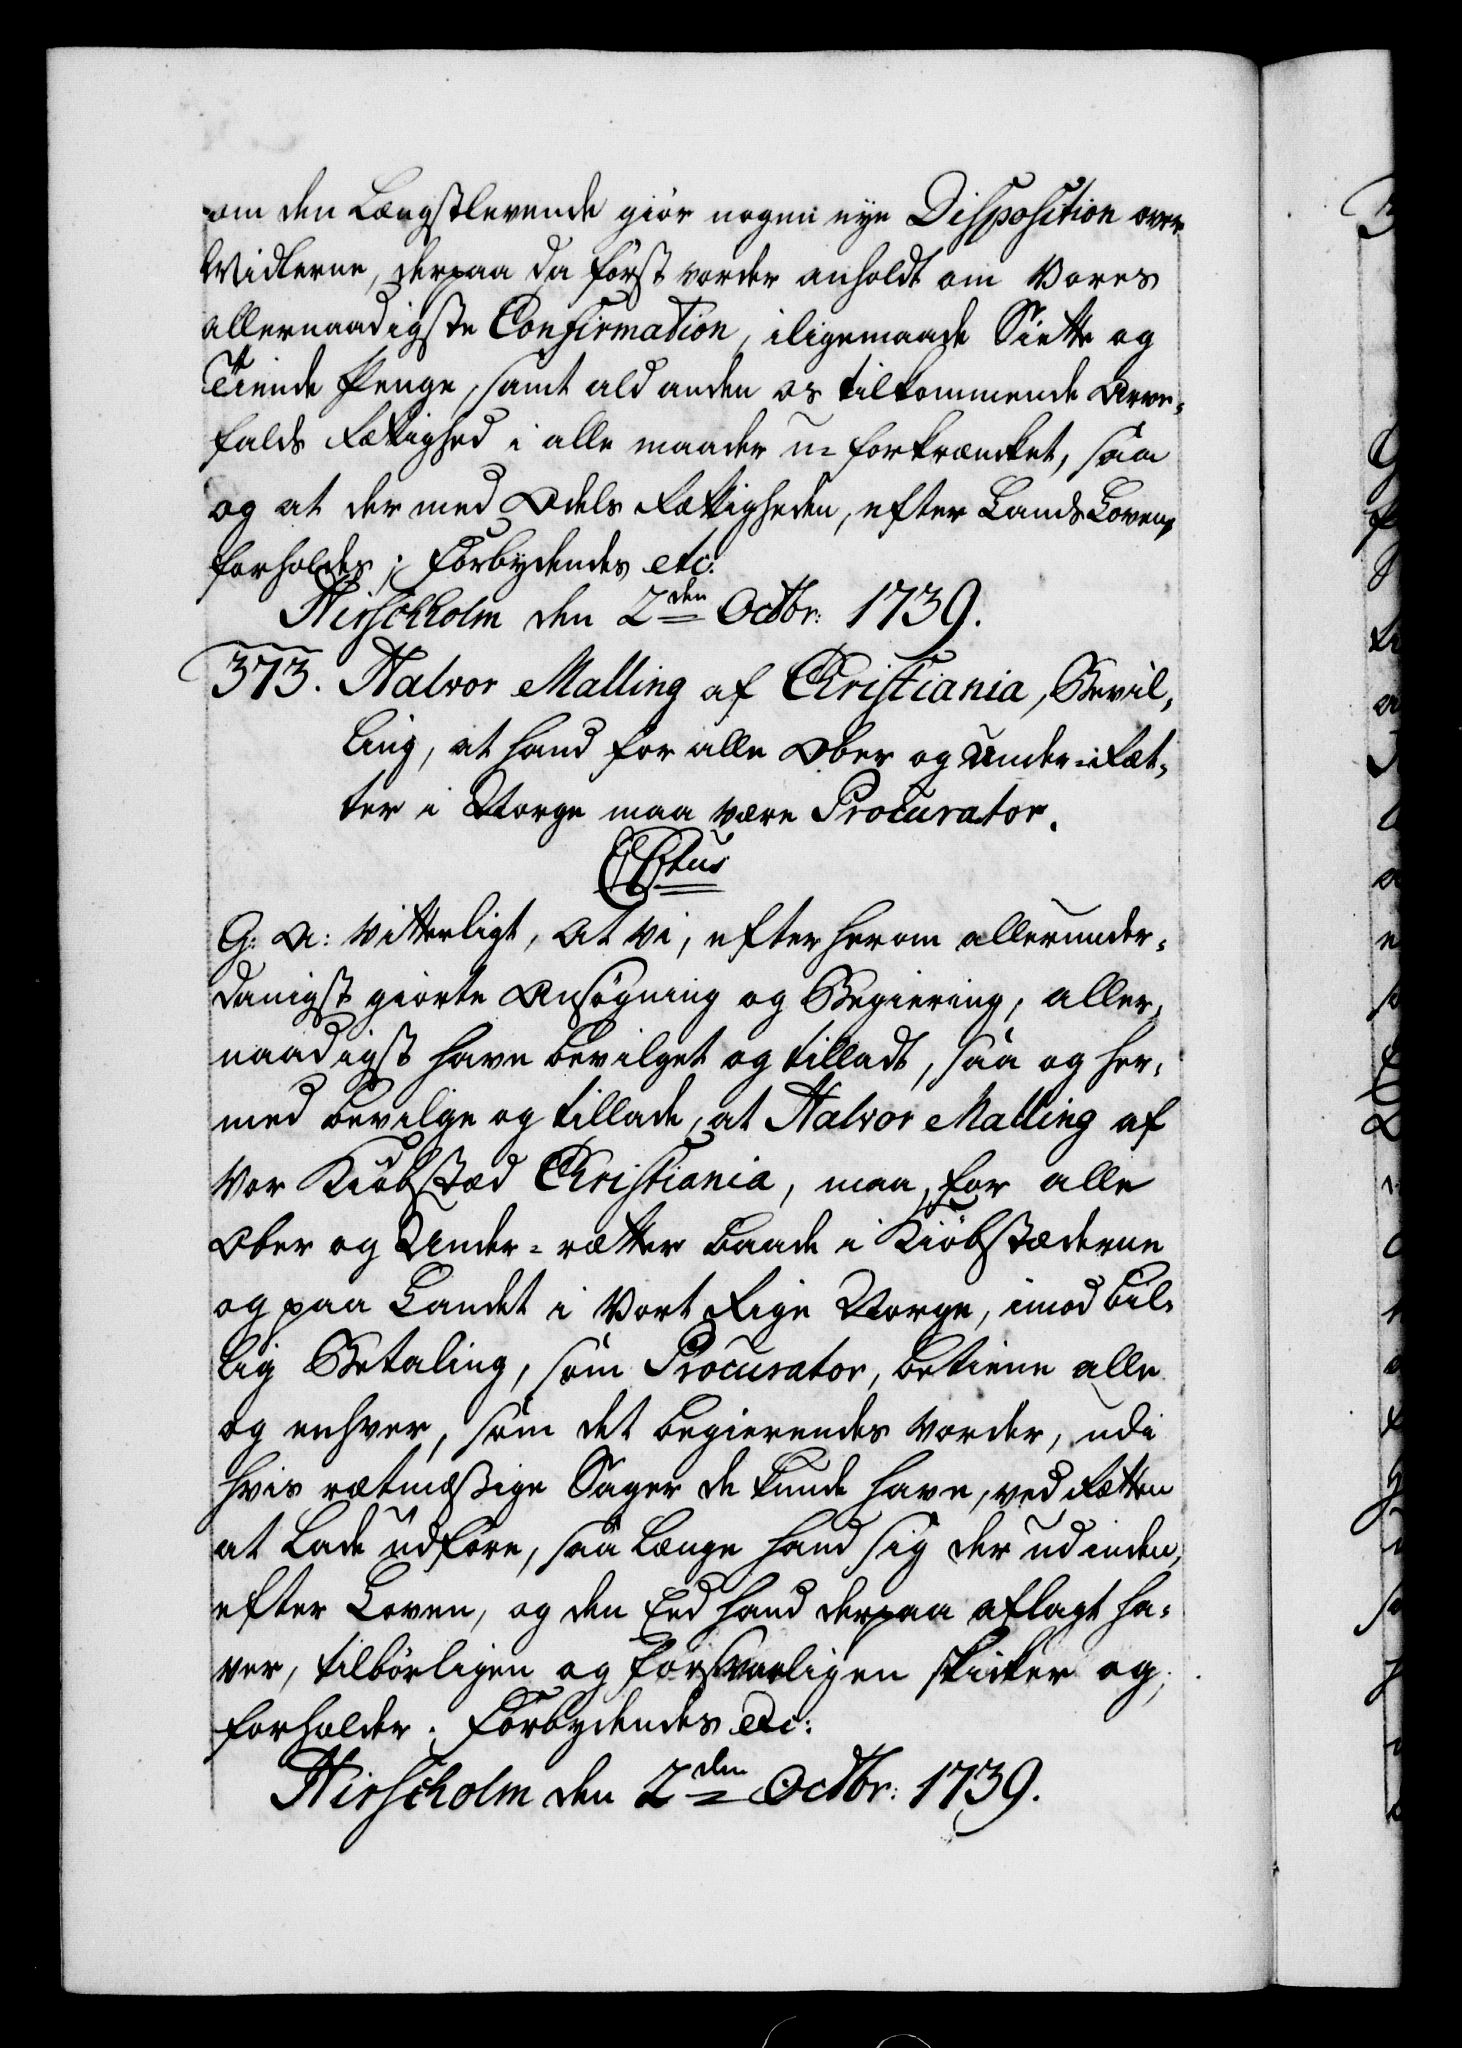 om den Længstlevende giør nogen nye Disposition over
Midlerne, derpaa da først vorder anholdt om Vores
allernaadigste Confirmation, iligemaade Siette og
Tiende Penge, samt ald anden os tilkommende Arve-
falds Rettighed i alle maader u-forkrænket, saa
og at der med Odels Rettigheden, efter Lands Loven,
forholdes; Forbydendes etc:
Hirschholm den 2den Octbr: 1739.
373. Halvor Malling af Christiania, Bevil-
ling, at hand for alle Ober og Under-Ræt-
ter i Norge maa være Procurator.
C6tus
G: A: vitterligt, at vi, efter herom allerunder-
danigst giorte Ansøgning og Begiering, aller-
naadigst have bevilget og tilladt, saa og her-
med bevilge og tillade, at Halvor Malling af
vor Kiøbstæd Christiania, maa, for alle
Ober og Under-rætter baade i Kiøbstæderne
og paa Landet i Vort Rige Norge, imod bil-
lig Betaling, som Procurator, betiene alle
og enhver, som det begierendes vorder, udi
hvis rætmæssige Sager de kunde have, ved Rætten
at lade udføre, saa længe hand sig der udinden,
efter Loven, og den Eed hand derpaa aflagt ha-
ver, tilbørligen og forsvarligen skicker og
forholder. Forbydendes etc:
Hirscholm den 2den Octbr: 1739.